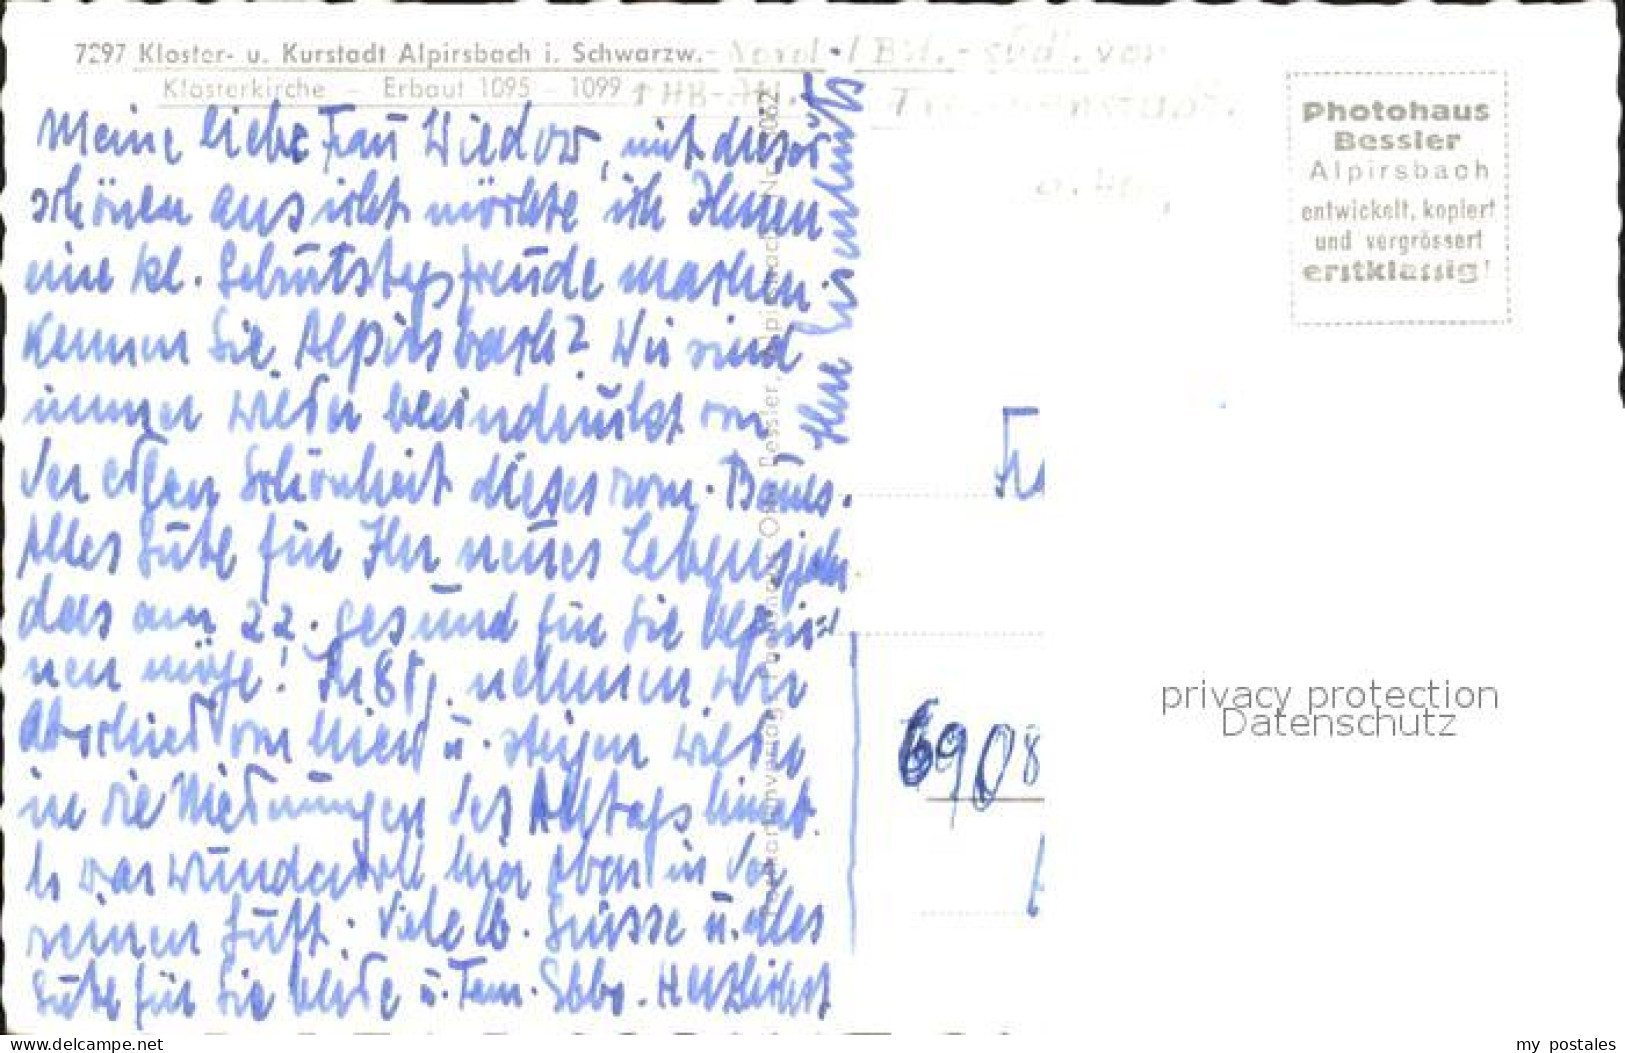 7297 Kloster- u. Kurstadt Alpirsbach i. Schwarzw.-
Klosterkirche - Erbaut 1095 - 1099
südl. von
Meine liebe Frau Wiedow, mit dieser
schönen Ansicht möchte ich Ihnen
eine kl. Geburtstagsfreude machen.
Kennen Sie Alpirsbach? Wir sind
immer wieder beeindruckt von
der edlen Schönheit dieses rom. Baues.
Alles Gute für Ihr neues Lebensjahr
das am 22. gesund für Sie begin-
nen möge! nehmen wir
Abschied von hier u. steigen wieder
in die Niederungen des Alltags hinab.
Es war wundervoll hier oben in der
reinen Luft. Viele lb. Grüsse u. alles
Gute für Sie beide u. Fam. Herzlichst
Ihre
Photohaus
Bessler
Alpirsbach
entwickelt, kopiert
und vergrössert
erstklassig!
6908
privacy protection
Datenschutz
www.delcampe.net
my_postales